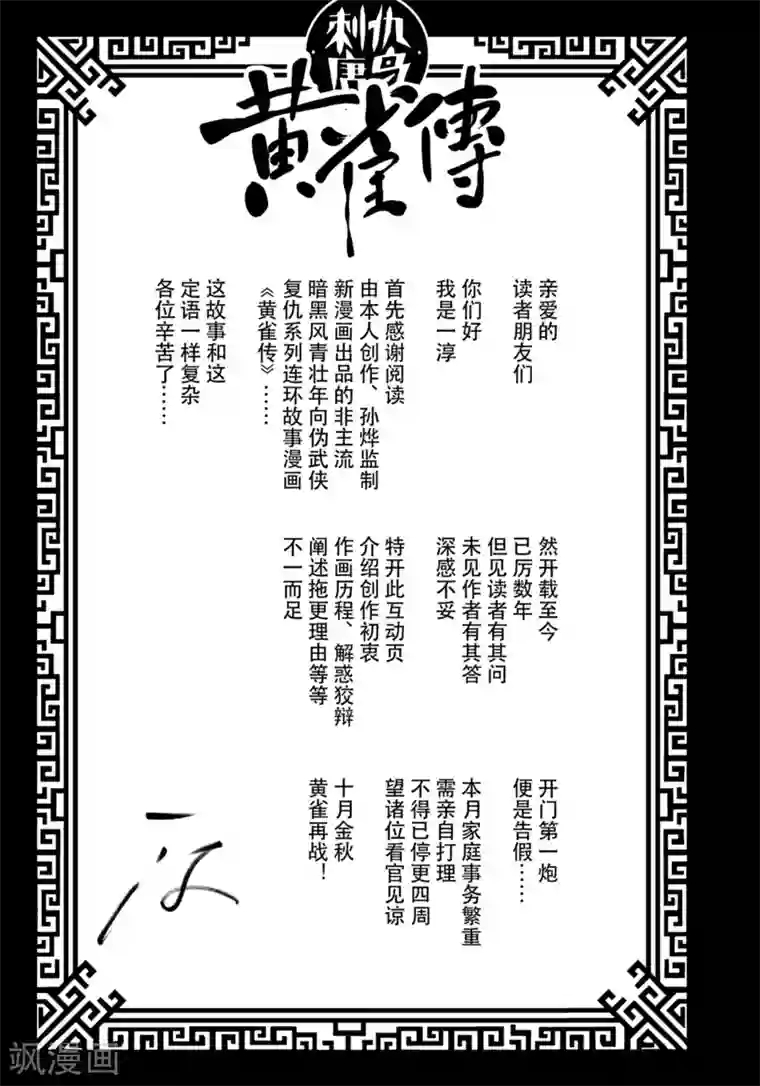 刺仇
黄雀傳
亲爱的
读者朋友们
你们好
我是一淳
首先感谢阅读
由本人创作、孙烨监制
新漫画出品的非主流
暗黑风青壮年向伪武侠
复仇系列连环故事漫画
《黄雀传》……
这故事和这
定语一样复杂
各位辛苦了……
然开载至今
已厉数年
但见读者有其问
未见作者有其答
深感不妥
特开此互动页
介绍创作初衷
作画历程、解惑狡辩
阐述拖更理由等等
不一而足
开门第一炮
便是告假……
本月家庭事务繁重
需亲自打理
不得已停更四周
望诸位看官见谅
十月金秋
黄雀再战！
飒漫画